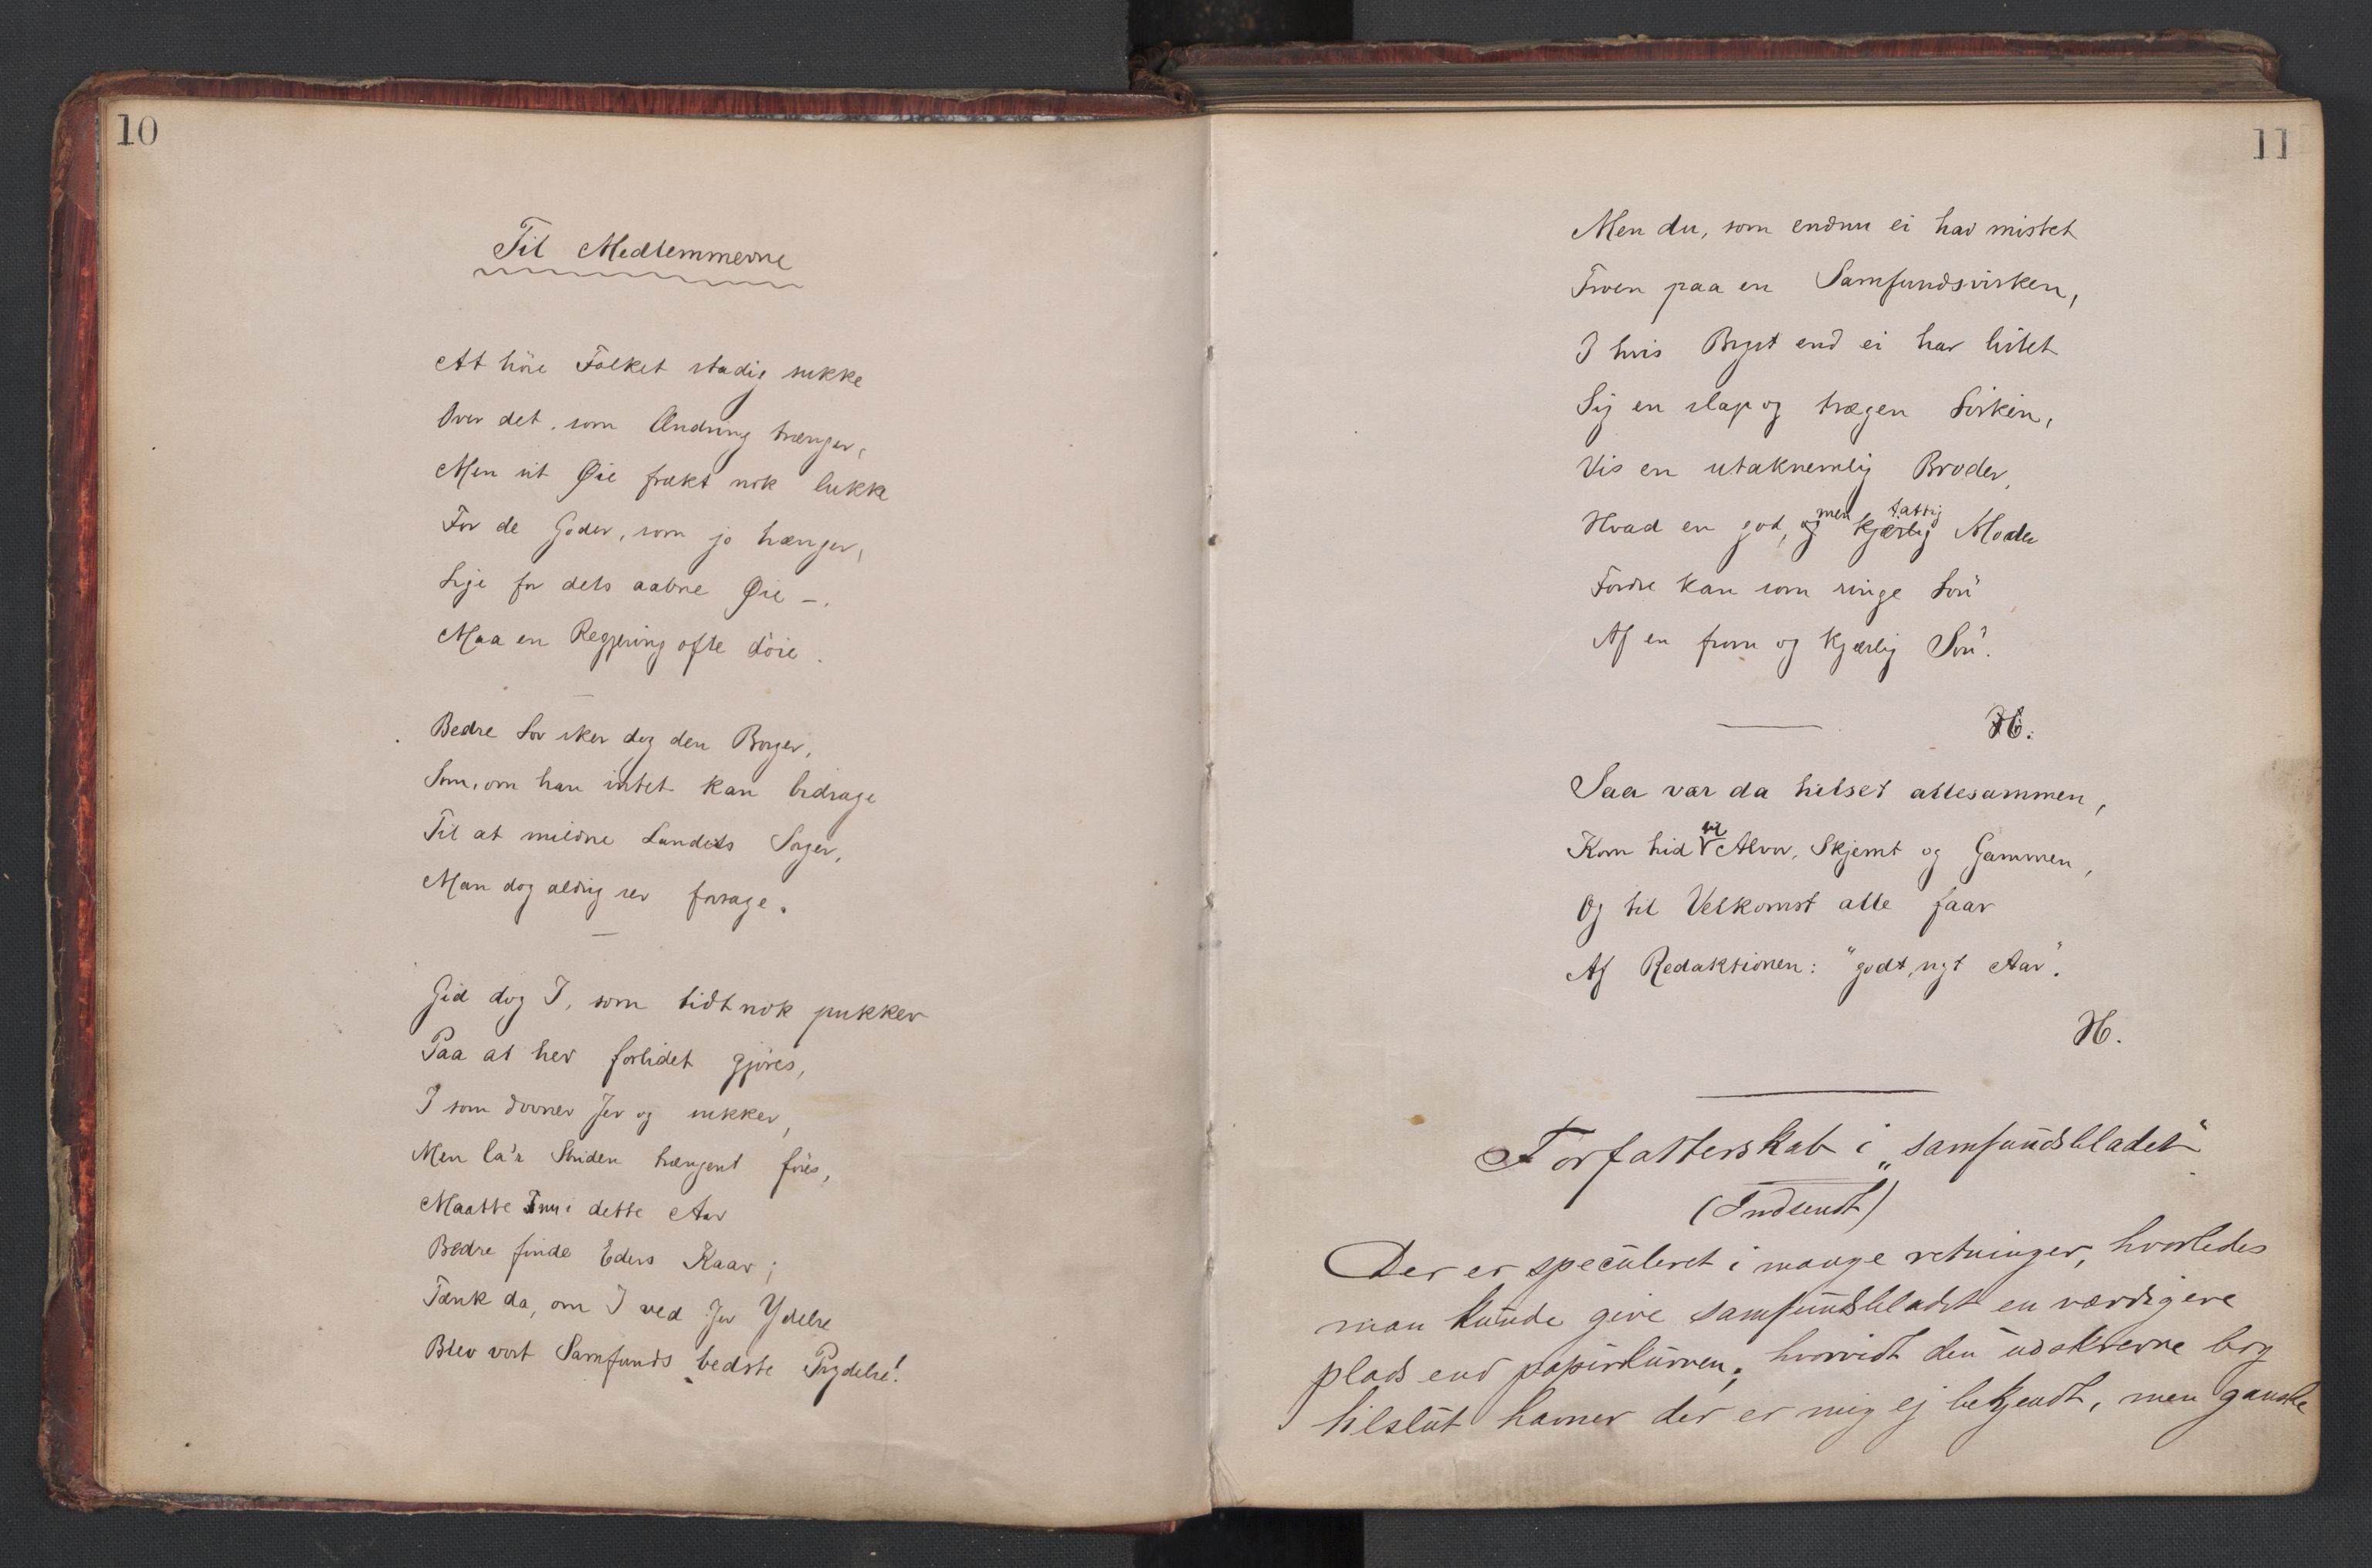 10
Til Medlemmerne
At höre Folket stadig sukke
Over det, som Ændring trænger,
Men sit Øie frækt nok lukke
For de Goder, som jo hænger,
Lige for dets aabne Øie —.
Maa en Regjering ofte döie.
Bedre Lov sker dog den Borger,
Som, om han intet kan bidrage
Til at mildne Landets Sorger,
Man dog aldrig ser forsage.
Gid dog I, som tidt nok pukker
Paa at her forlidet gjöres,
I som dovner Jer og sukker,
Men la'r Striden trængent föres,
Maatte I nu i dette Aar
Bedre finde Eders Kaar;
Tænk da, om I ved Jer Ydelse
Blev vort Samfunds bedste Prydelse!
11
Men du, som endnu ei har mistet
Troen paa en Samfundsvirken,
I hvis Bryst end ei har listet
Sig en slap og trægen Dirken,
Vis en utaknemlig Broder,
Hvad en god, og men kjærlig fattig Moder
Fordre kan som ringe Lön
Af en from og kjærlig Sön.
H.
Saa vær da hilset allesammen,
Kom hid til Alvor, Skjemt og Gammen,
Og til Velkomst alle faar
Af Redaktionen: "godt, nyt Aar".
H.
Forfatterskab i „samfundsbladet“
(Indsendt)
Der er speculeret i mange retninger, hvorledes
man kunde give samfundsbladet en værdigere
plads end papirkurven; hvorvidt den udskrevne bog
tilslut havner der er mig ej bekjendt, men ganske